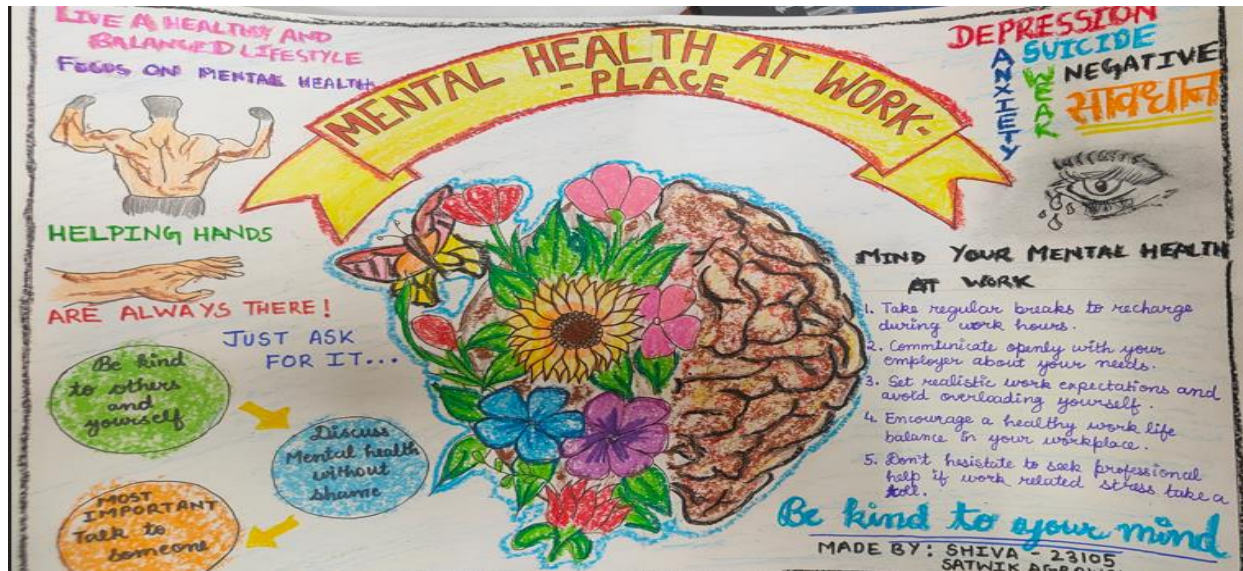 LIVE A HEALTHY AND
BALANCED LIFESTYLE
FOCUS ON MENTAL HEALTH
MENTAL HEALTH AT WORK-
- PLACE
DEPRESSION
ANXIETY
SUICIDE
WEAK
NEGATIVE
सावधान
HELPING HANDS
ARE ALWAYS THERE!
JUST ASK
FOR IT...
Be kind
to others
and
yourself
Discuss
Mental health
without
shame
MOST
IMPORTANT
Talk to
someone
MIND YOUR MENTAL HEALTH
AT WORK
1. Take regular breaks to recharge
during work hours.
2. Communicate openly with your
employer about your needs.
3. Set realistic work expectations and
avoid overloading yourself.
4. Encourage a healthy work life
balance in your workplace.
5. Don't hesistate to seek professional
help if work related stress take a
toll.
Be kind to your mind
MADE BY: SHIVA - 23105
SATWIK